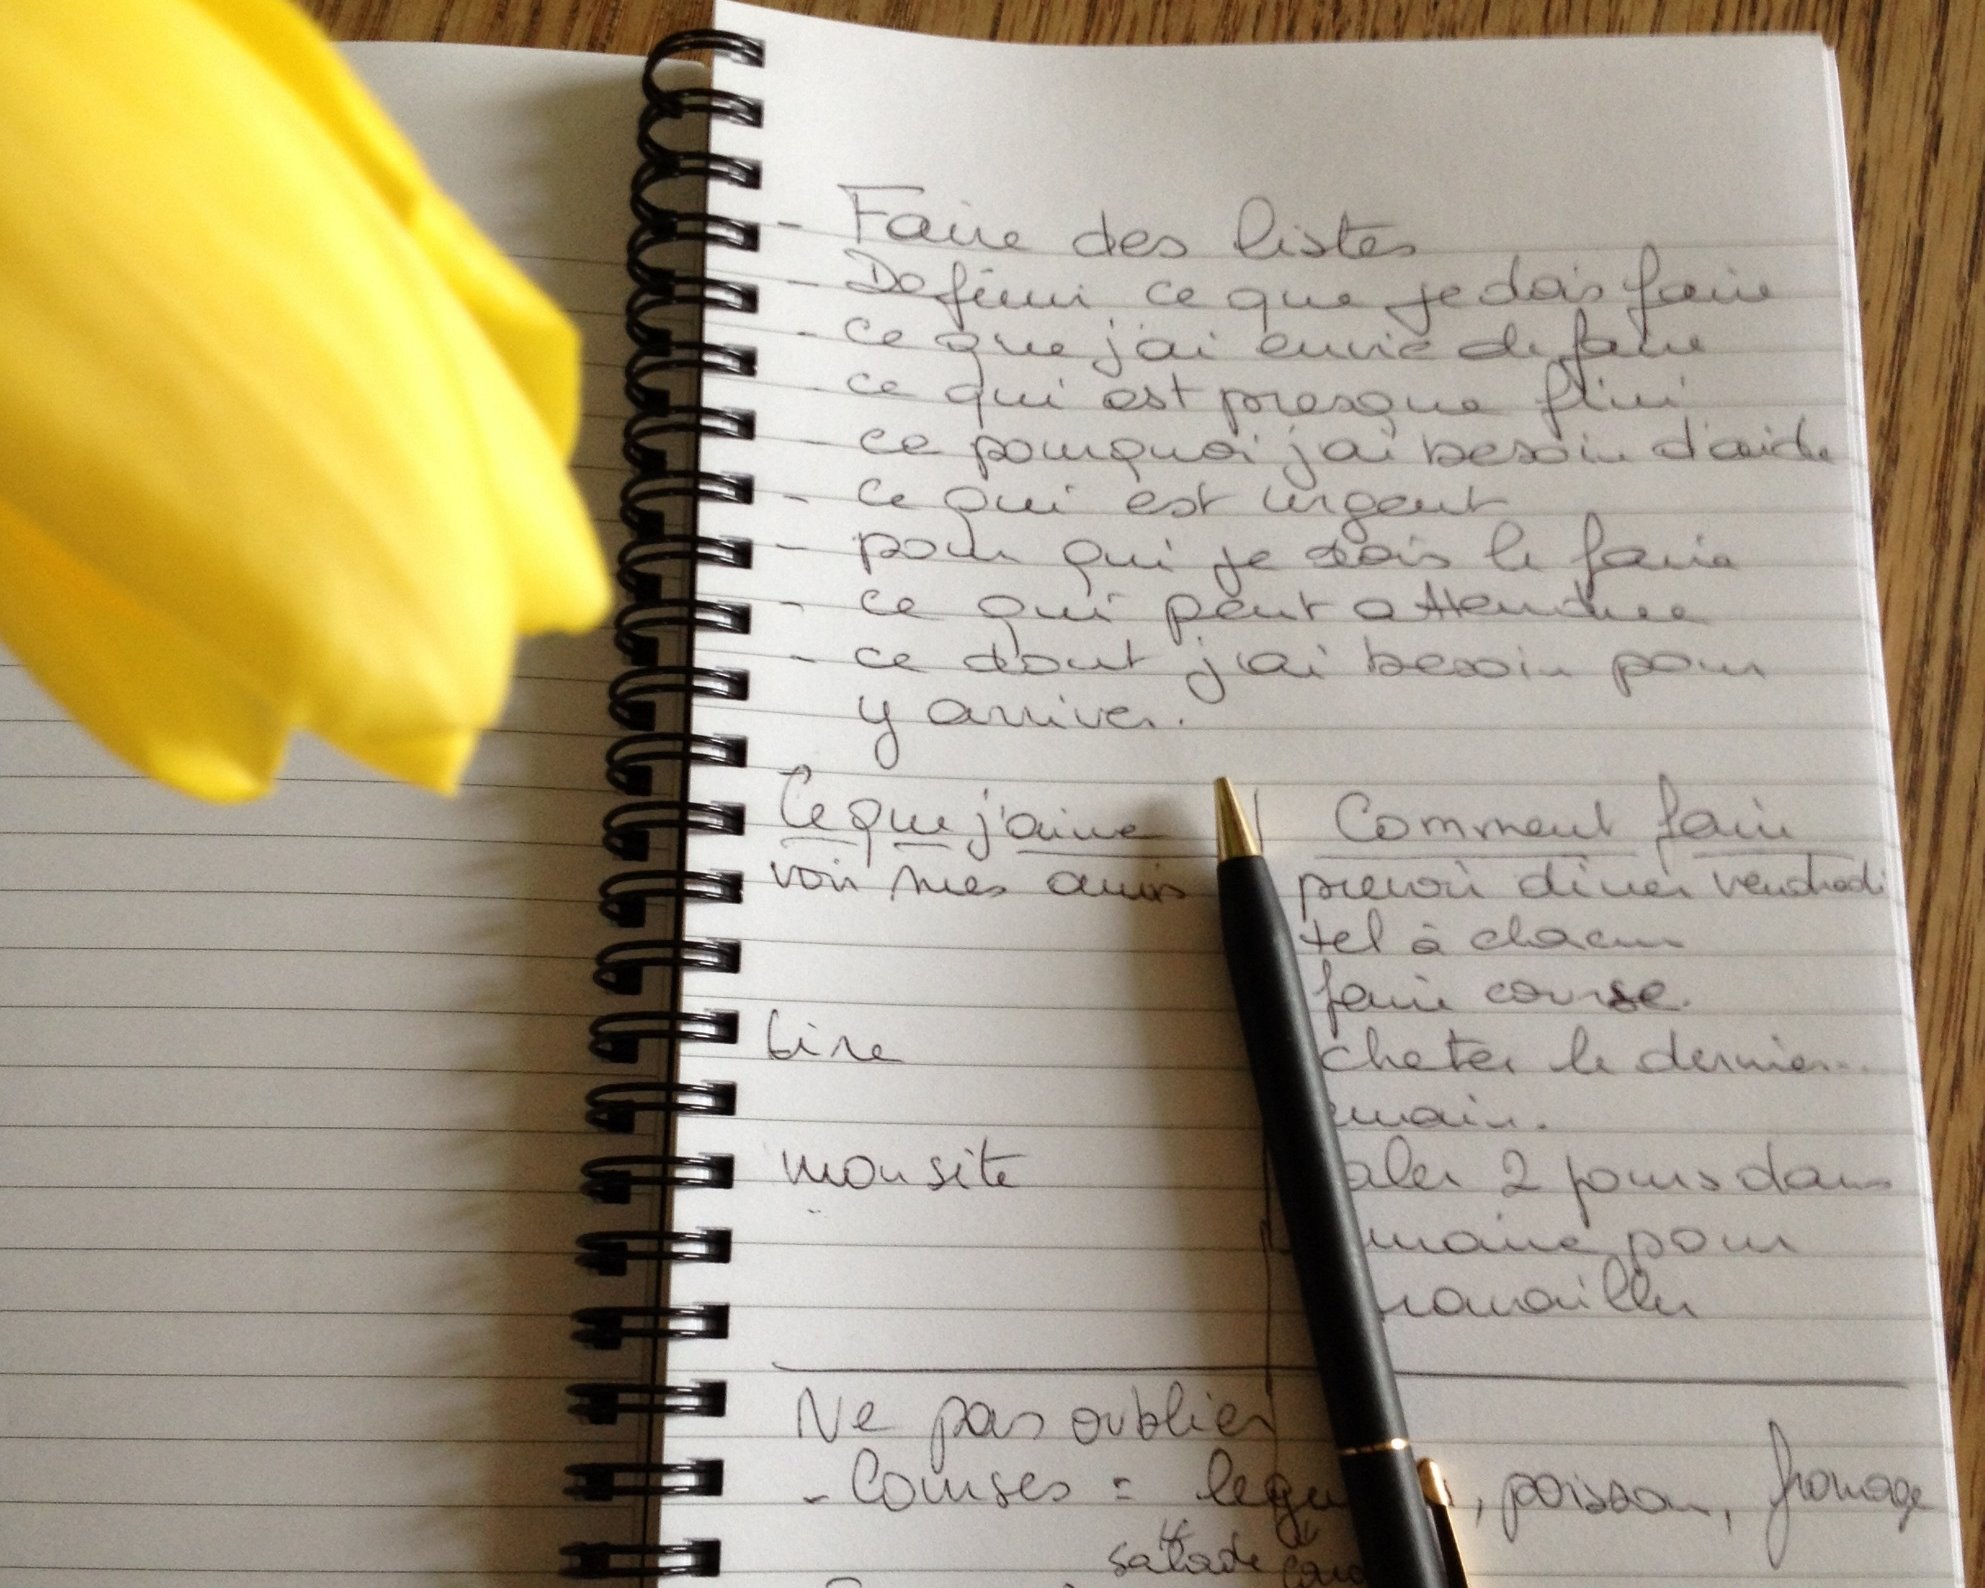 - Faire des listes
- Definir ce que je dois faire
- ce que j'ai envie de faire
- ce qui est presque fini
- ce pourquoi j'ai besoin d'aide
- ce qui est urgent
- pour qui je dois le faire
- ce qui peut attendre
- ce dont j'ai besoin pour
y arriver.
Ce que j'aime Comment faire
voir mes amis prevoir diner vendredi
tel à chacun
faire course.
Lire cheter le dernier...
main.
mon site aler 2 jours dans
maine pour
ravailler
Ne pas oublier
- Courses = legu , poisson, fromage
salade